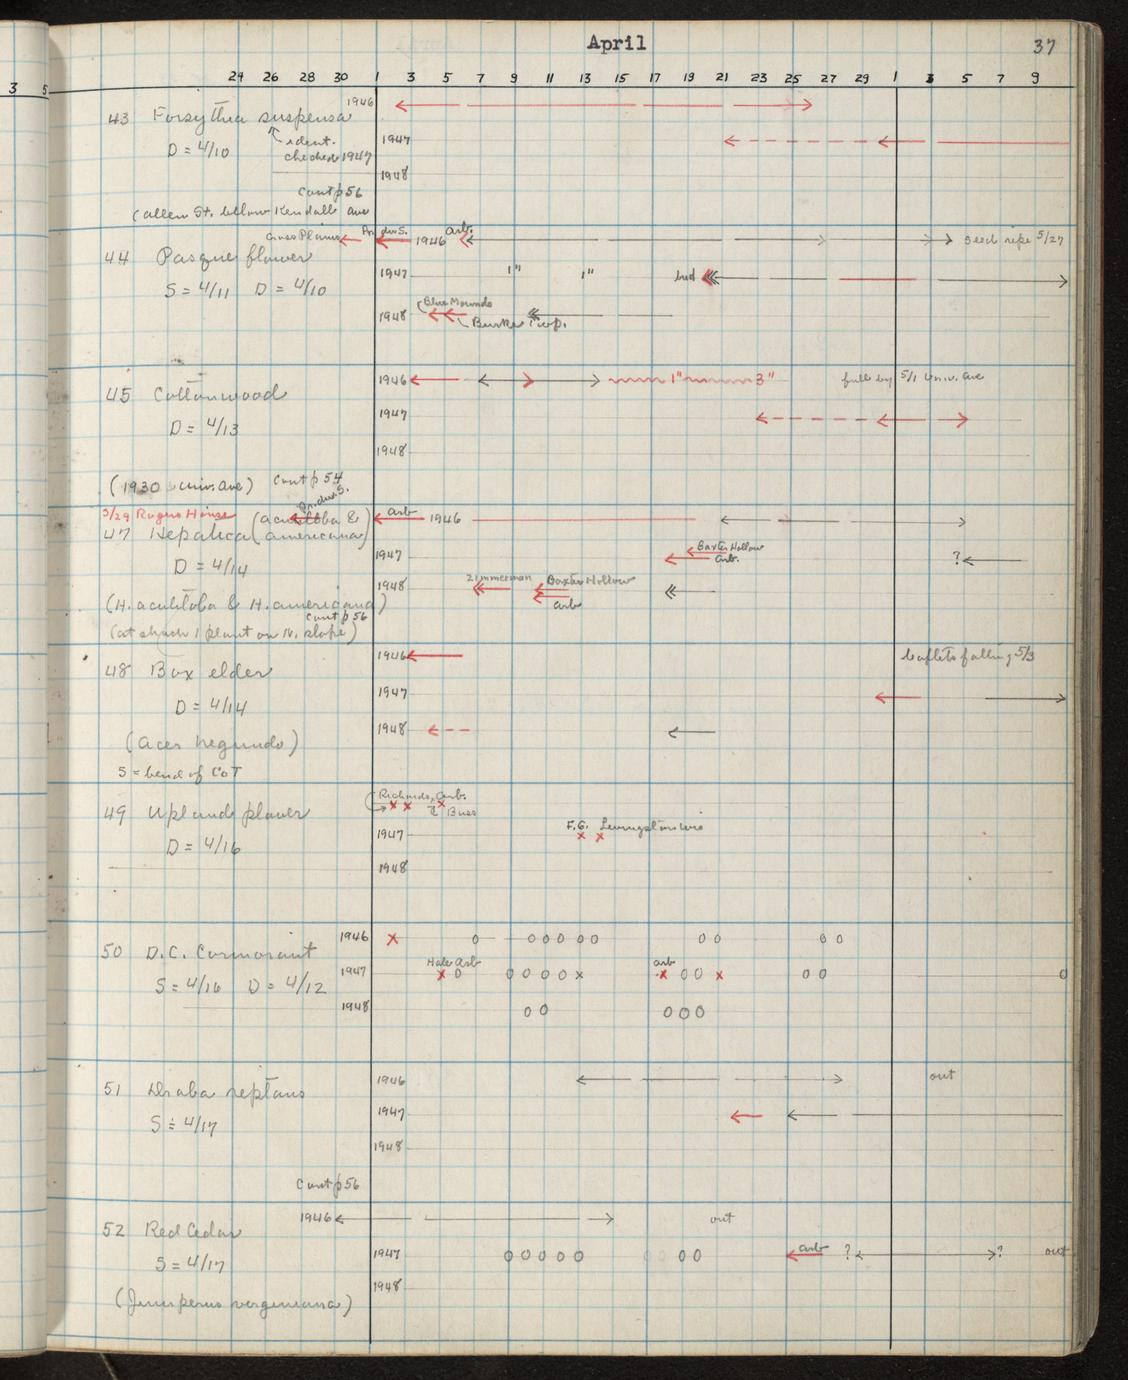 April
37
3 5
24 26 28 30 1 3 5 7 9 11 13 15 17 19 21 23 25 27 29 1 3 5 7 9
1946
43 Forsythia suspensa
D = 4/10
ident.
checked 1947
1947
1948
Cont p 56
(Allen St. below Kendall Ave
Cross Plains Pr. du S. 1946 Arb. Seed ripe 5/27
44 Pasque flower
S = 4/11 D = 4/10
1947 1" 1" bud
Blue Mounds
1948
Burke Twp.
45 Cottonwood
D = 4/13
1946 1" 3" full by 5/1 Univ. Ave
1947
1948
(1930 Univ. Ave) Cont p 54
Pr. du S.
3/29 Rogers House (acutiloba & Arb 1946
47 Hepatica americana)
D = 4/14
1947 Baxter Hollow
Arb. ?
1948 Zimmerman Baxter Hollow
Arb
(H. acutiloba & H. americana)
Cont p 56
(at shack 1 plant on N. slope)
1946 leaflets falling 5/3
48 Box elder
D = 4/14
1947
1948
(Acer negundo)
S = bend of Co T
Richards, Arb.
49 Upland plover
Buss
1947 F.G. Livingston
D = 4/16
1948
1946 x o o o o o o o o o o
50 D.C. Cormorant
Hale Arb arb
1947 x o o o o o o x x o o x o o o
S = 4/16 D = 4/12
1948 o o o o o
1946 out
51 Draba reptans
S = 4/17
1947
1948
Cont p 56
1946 out
52 Red Cedar
S = 4/17
1947 o o o o o o o arb ? ? out
1948
(Juniperus virginiana)